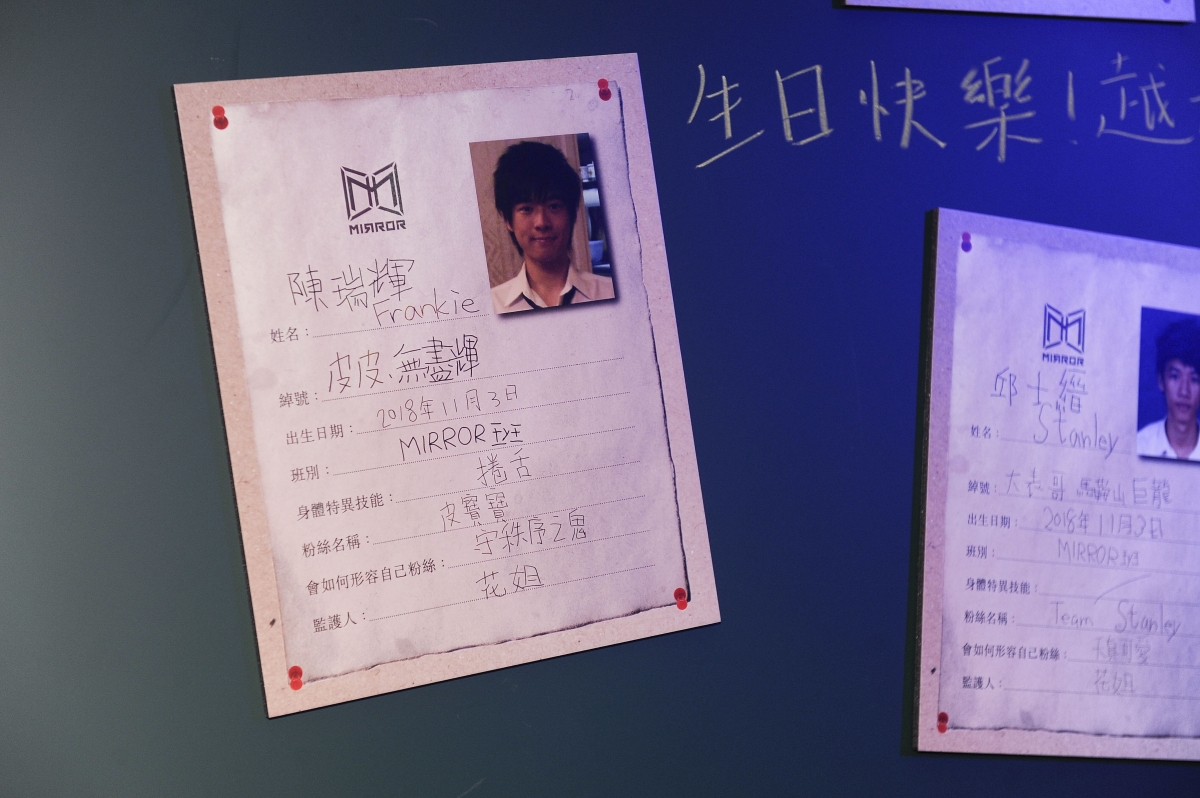 生日快樂!越
MIRROR
陳瑞輝
Frankie
姓名：
綽號： 皮皮、無盡輝
出生日期： 2018年11月3日
班別： MIRROR班
身體特異技能： 捲舌
粉絲名稱： 皮寶寶
會如何形容自己粉絲： 守秩序之鬼
監護人： 花姐
MIRROR
邱士縉
姓名： Stanley
綽號： 大表哥 馬鞍山巨龍
出生日期： 2018年11月3日
班別： MIRROR班
身體特異技能：
粉絲名稱： Team Stanley
會如何形容自己粉絲：
監護人： 花姐